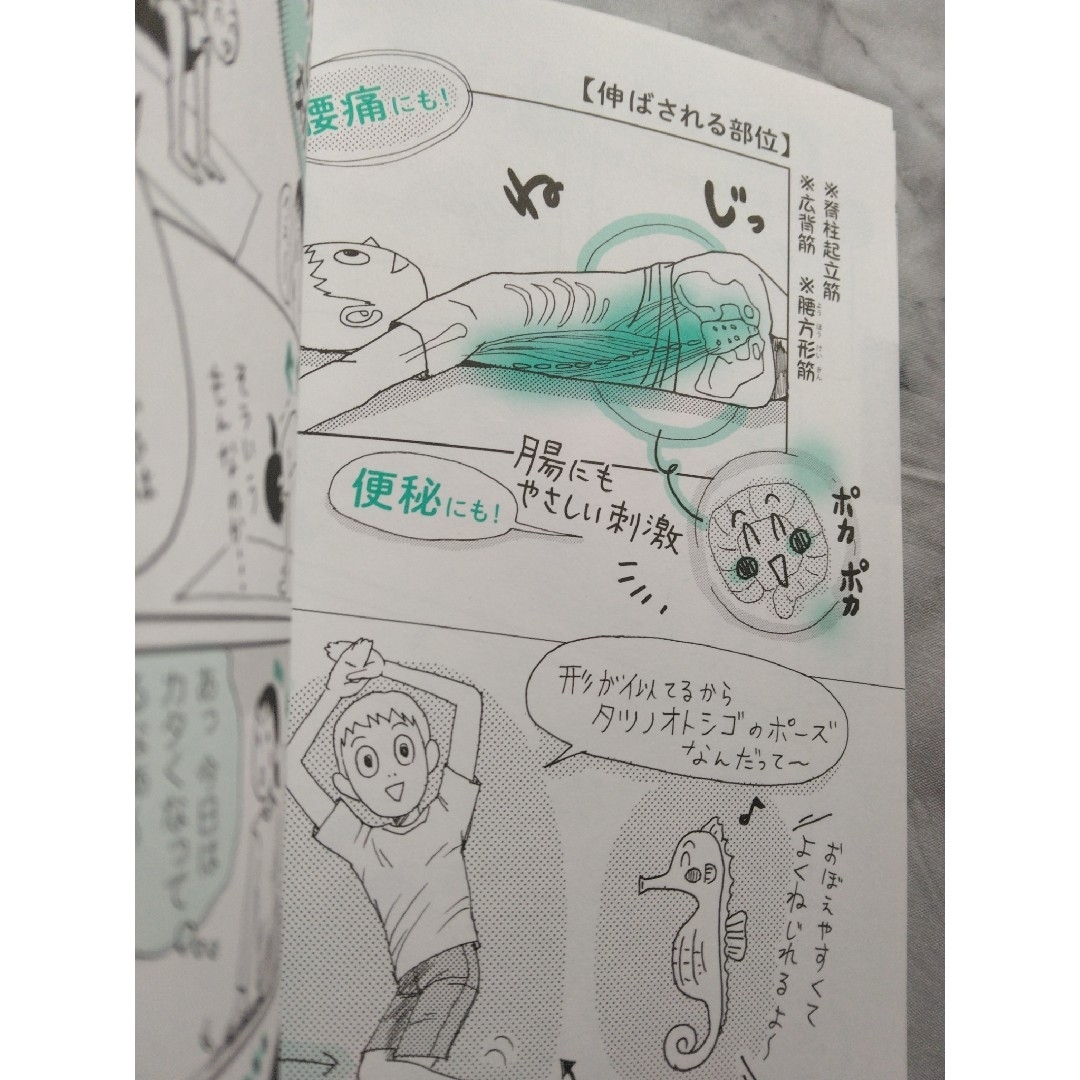 【伸ばされる部位】
※脊柱起立筋
※広背筋 ※腰方形筋
ようほうけいきん
腰痛にも!
ねじっ
腸にも
やさしい刺激
便秘にも!
ポカ
ポカ
形が似てるから
タツノオトシゴのポーズ
なんだって〜
おぼえやすくて
よくねじれるよ〜
そういう
もんなのか…
あっ 今日は
カタくなって